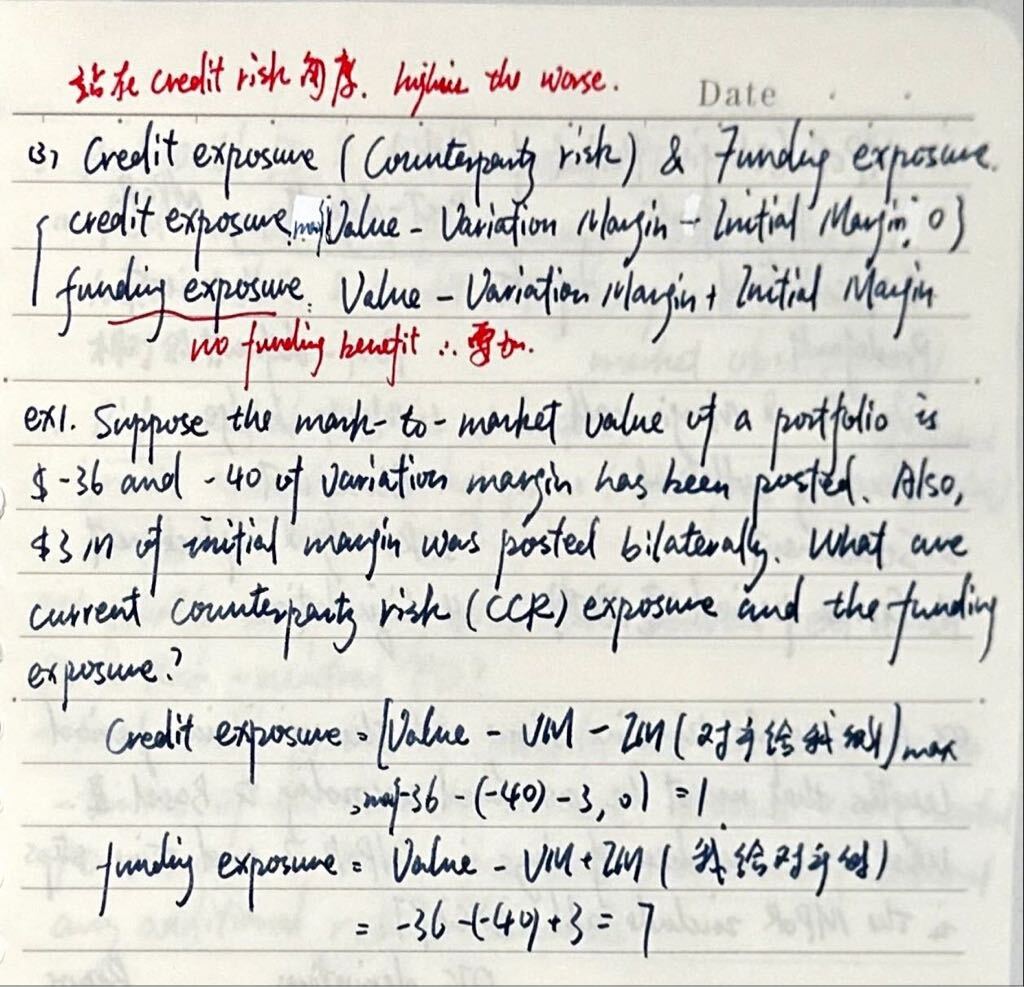 站在 credit risk 角度. higher the worse.
Date
(3) Credit exposure (Counterparty risk) & Funding exposure.
credit exposure: max{Value - Variation Margin - Initial Margin, 0}
funding exposure: Value - Variation Margin + Initial Margin
no funding benefit ∴ 要加.
ex1. Suppose the mark-to-market value of a portfolio is
$ -36 and -40 of variation margin has been posted. Also,
$3 in of initial margin was posted bilaterally. What are
current counterparty risk (CCR) exposure and the funding
exposure?
Credit exposure = [Value - VM - IM (对手给我的)]max
= max{-36 - (-40) - 3, 0} = 1
funding exposure = Value - VM + IM (我给对手的)
= -36 - (-40) + 3 = 7